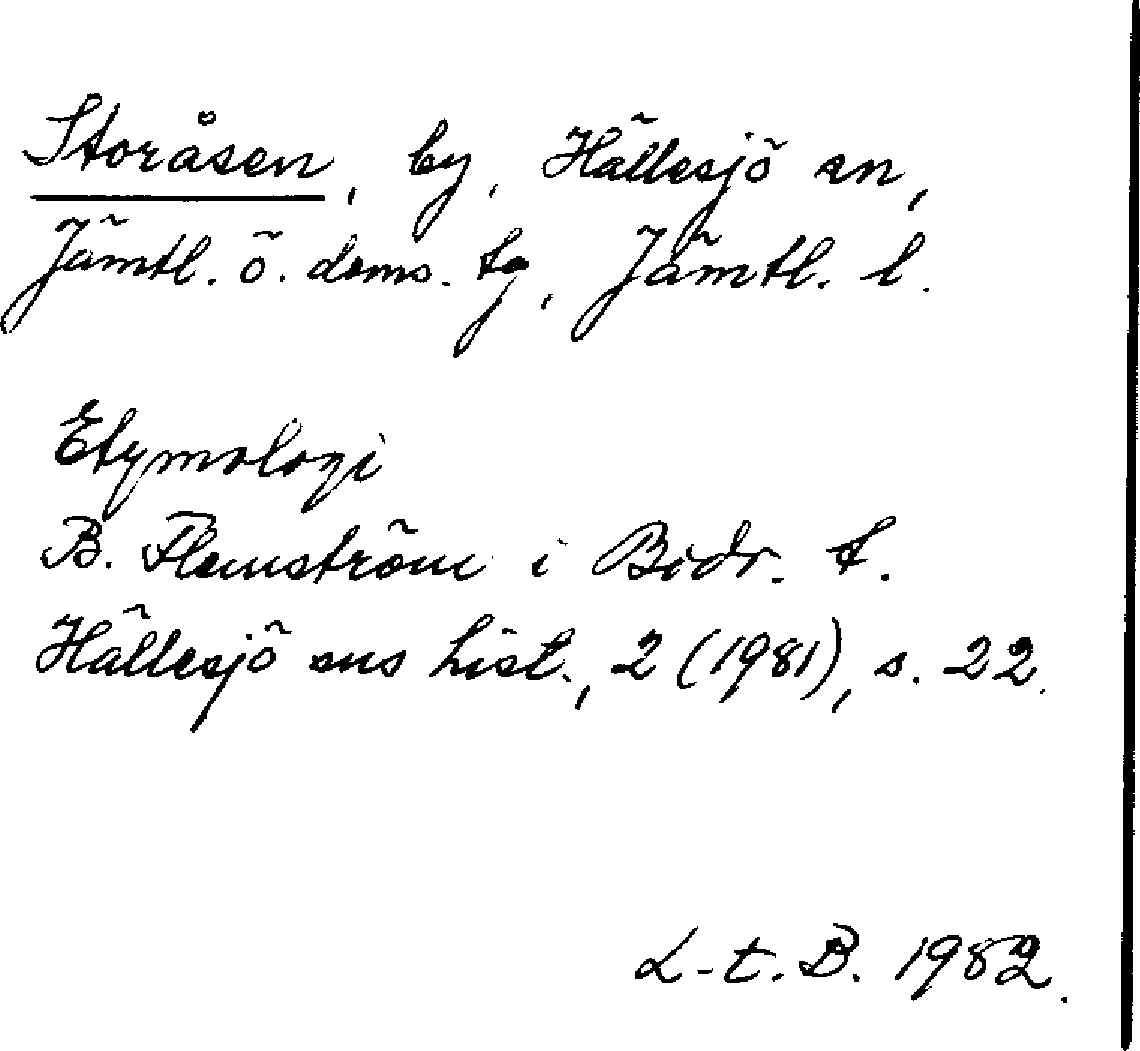 Storåsen, by, Hällesjö sn,
Jämtl. ö. doms. tg, Jämtl. l.
Etymologi
B. Flemström i Bidr. t.
Hällesjö sns hist., 2 (1981), s. 22.
L-t. B. 1982.